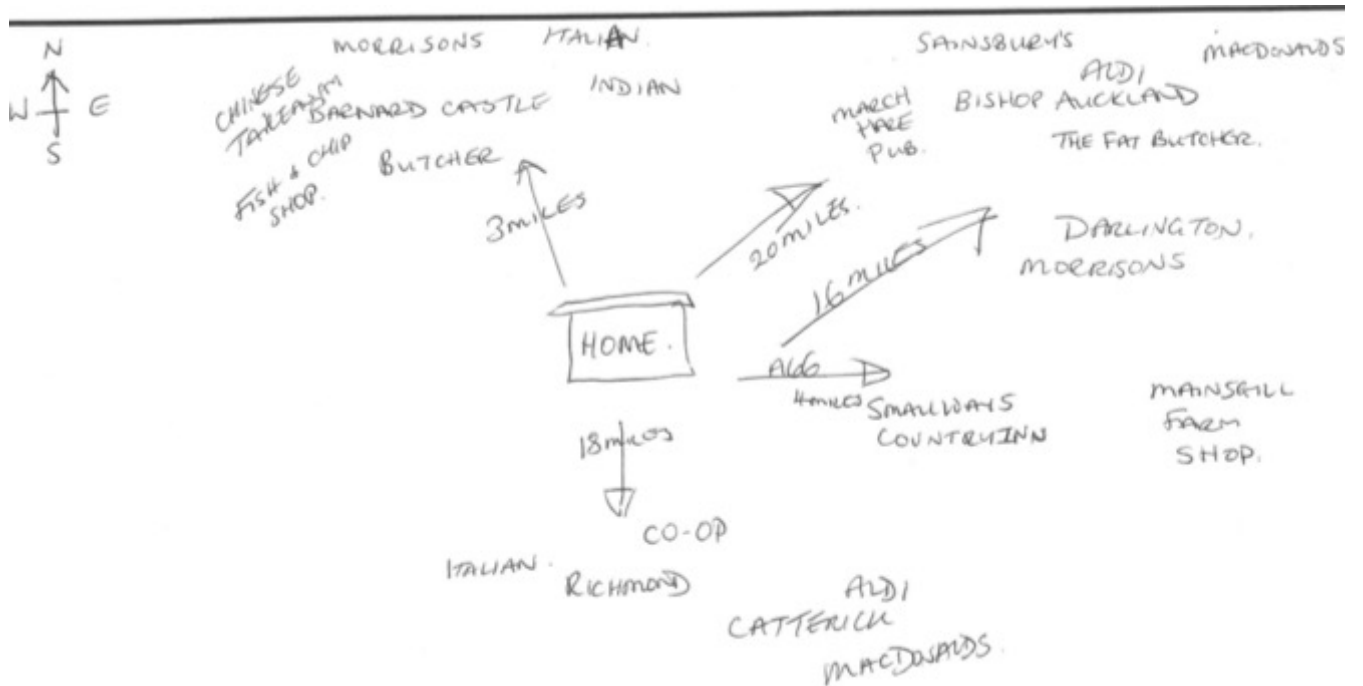 N
W E
S
MORRISONS ITALIAN.
CHINESE
TAKEAWAY
BARNARD CASTLE
INDIAN
FISH & CHIP
SHOP.
BUTCHER
3 MILES
SAINSBURY'S
MACDONALDS
ALDI
BISHOP AUCKLAND
MARCH
HARE
PUB.
THE FAT BUTCHER.
20 MILES.
DARLINGTON.
MORRISONS
16 MILES
HOME.
A66
4 MILES
SMALLWAYS
COUNTRY INN
MAINSGILL
FARM
SHOP.
18 MILES
CO-OP
ITALIAN.
RICHMOND
ALDI
CATTERICK
MACDONALDS.